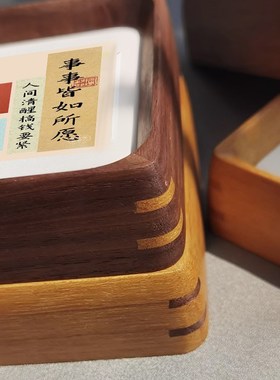 事事皆如所愿
人间清醒搞钱要紧